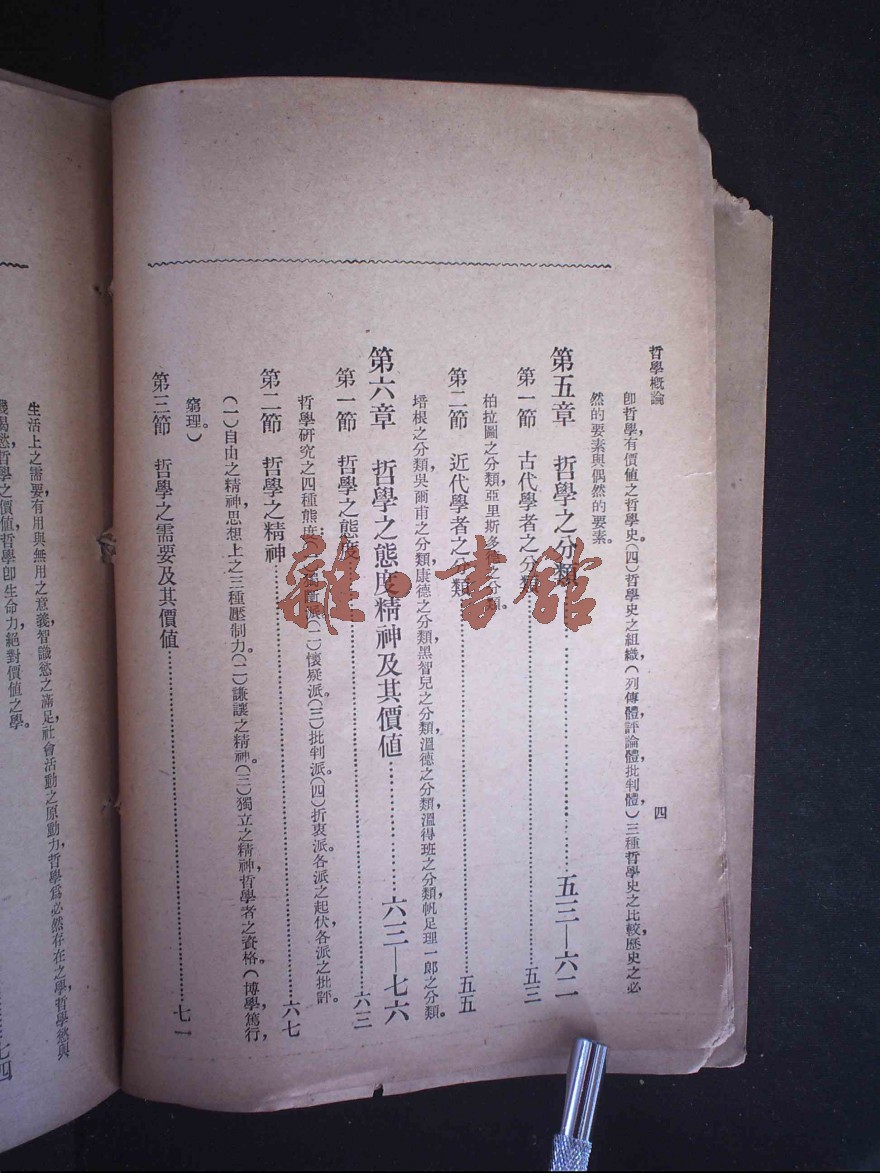 哲學概論
四
即哲學,有價値之哲學史(四)哲學史之組織,(列傳體,評論體,批判體,)三種哲學史之比較,歷史之必
然的要素與偶然的要素。
第五章 哲學之分類…………五三—六二
第一節 古代學者之分類…………五三
柏拉圖之分類,亞里斯多德之分類。
第二節 近代學者之分類…………五五
培根之分類,吳爾甫之分類,康德之分類,黑智兒之分類,溫德之分類,溫得班之分類,帆足理一郞之分類。
第六章 哲學之態度精神及其價値…………六三—七六
第一節 哲學之態度…………六三
哲學硏究之四種態度:(一)獨斷派。(二)懷疑派。(三)批判派。(四)折衷派。各派之起伏,各派之批評。
第二節 哲學之精神…………六七
(一)自由之精神,思想上之三種壓制力。(二)謙讓之精神。(三)獨立之精神,哲學者之資格。(博學,篤行,
窮理。)
第三節 哲學之需要及其價値…………七一
生活上之需要,有用與無用之意義,智識慾之滿足,社會活動之原動力,哲學爲必然存在之學,哲學慾與
機渴慾,哲學之價値,哲學卽生命力,絕對價値之學。
七四
雜·書館